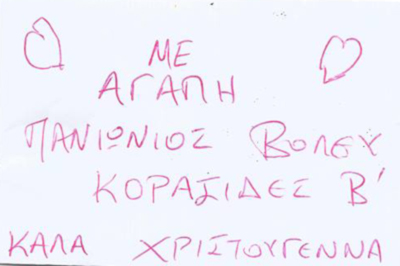 ΜΕ
ΑΓΑΠΗ
ΠΑΝΙΩΝΙΟΣ ΒΟΛΕΥ
ΚΟΡΑΣΙΔΕΣ Β'
ΚΑΛΑ ΧΡΙΣΤΟΥΓΕΝΝΑ